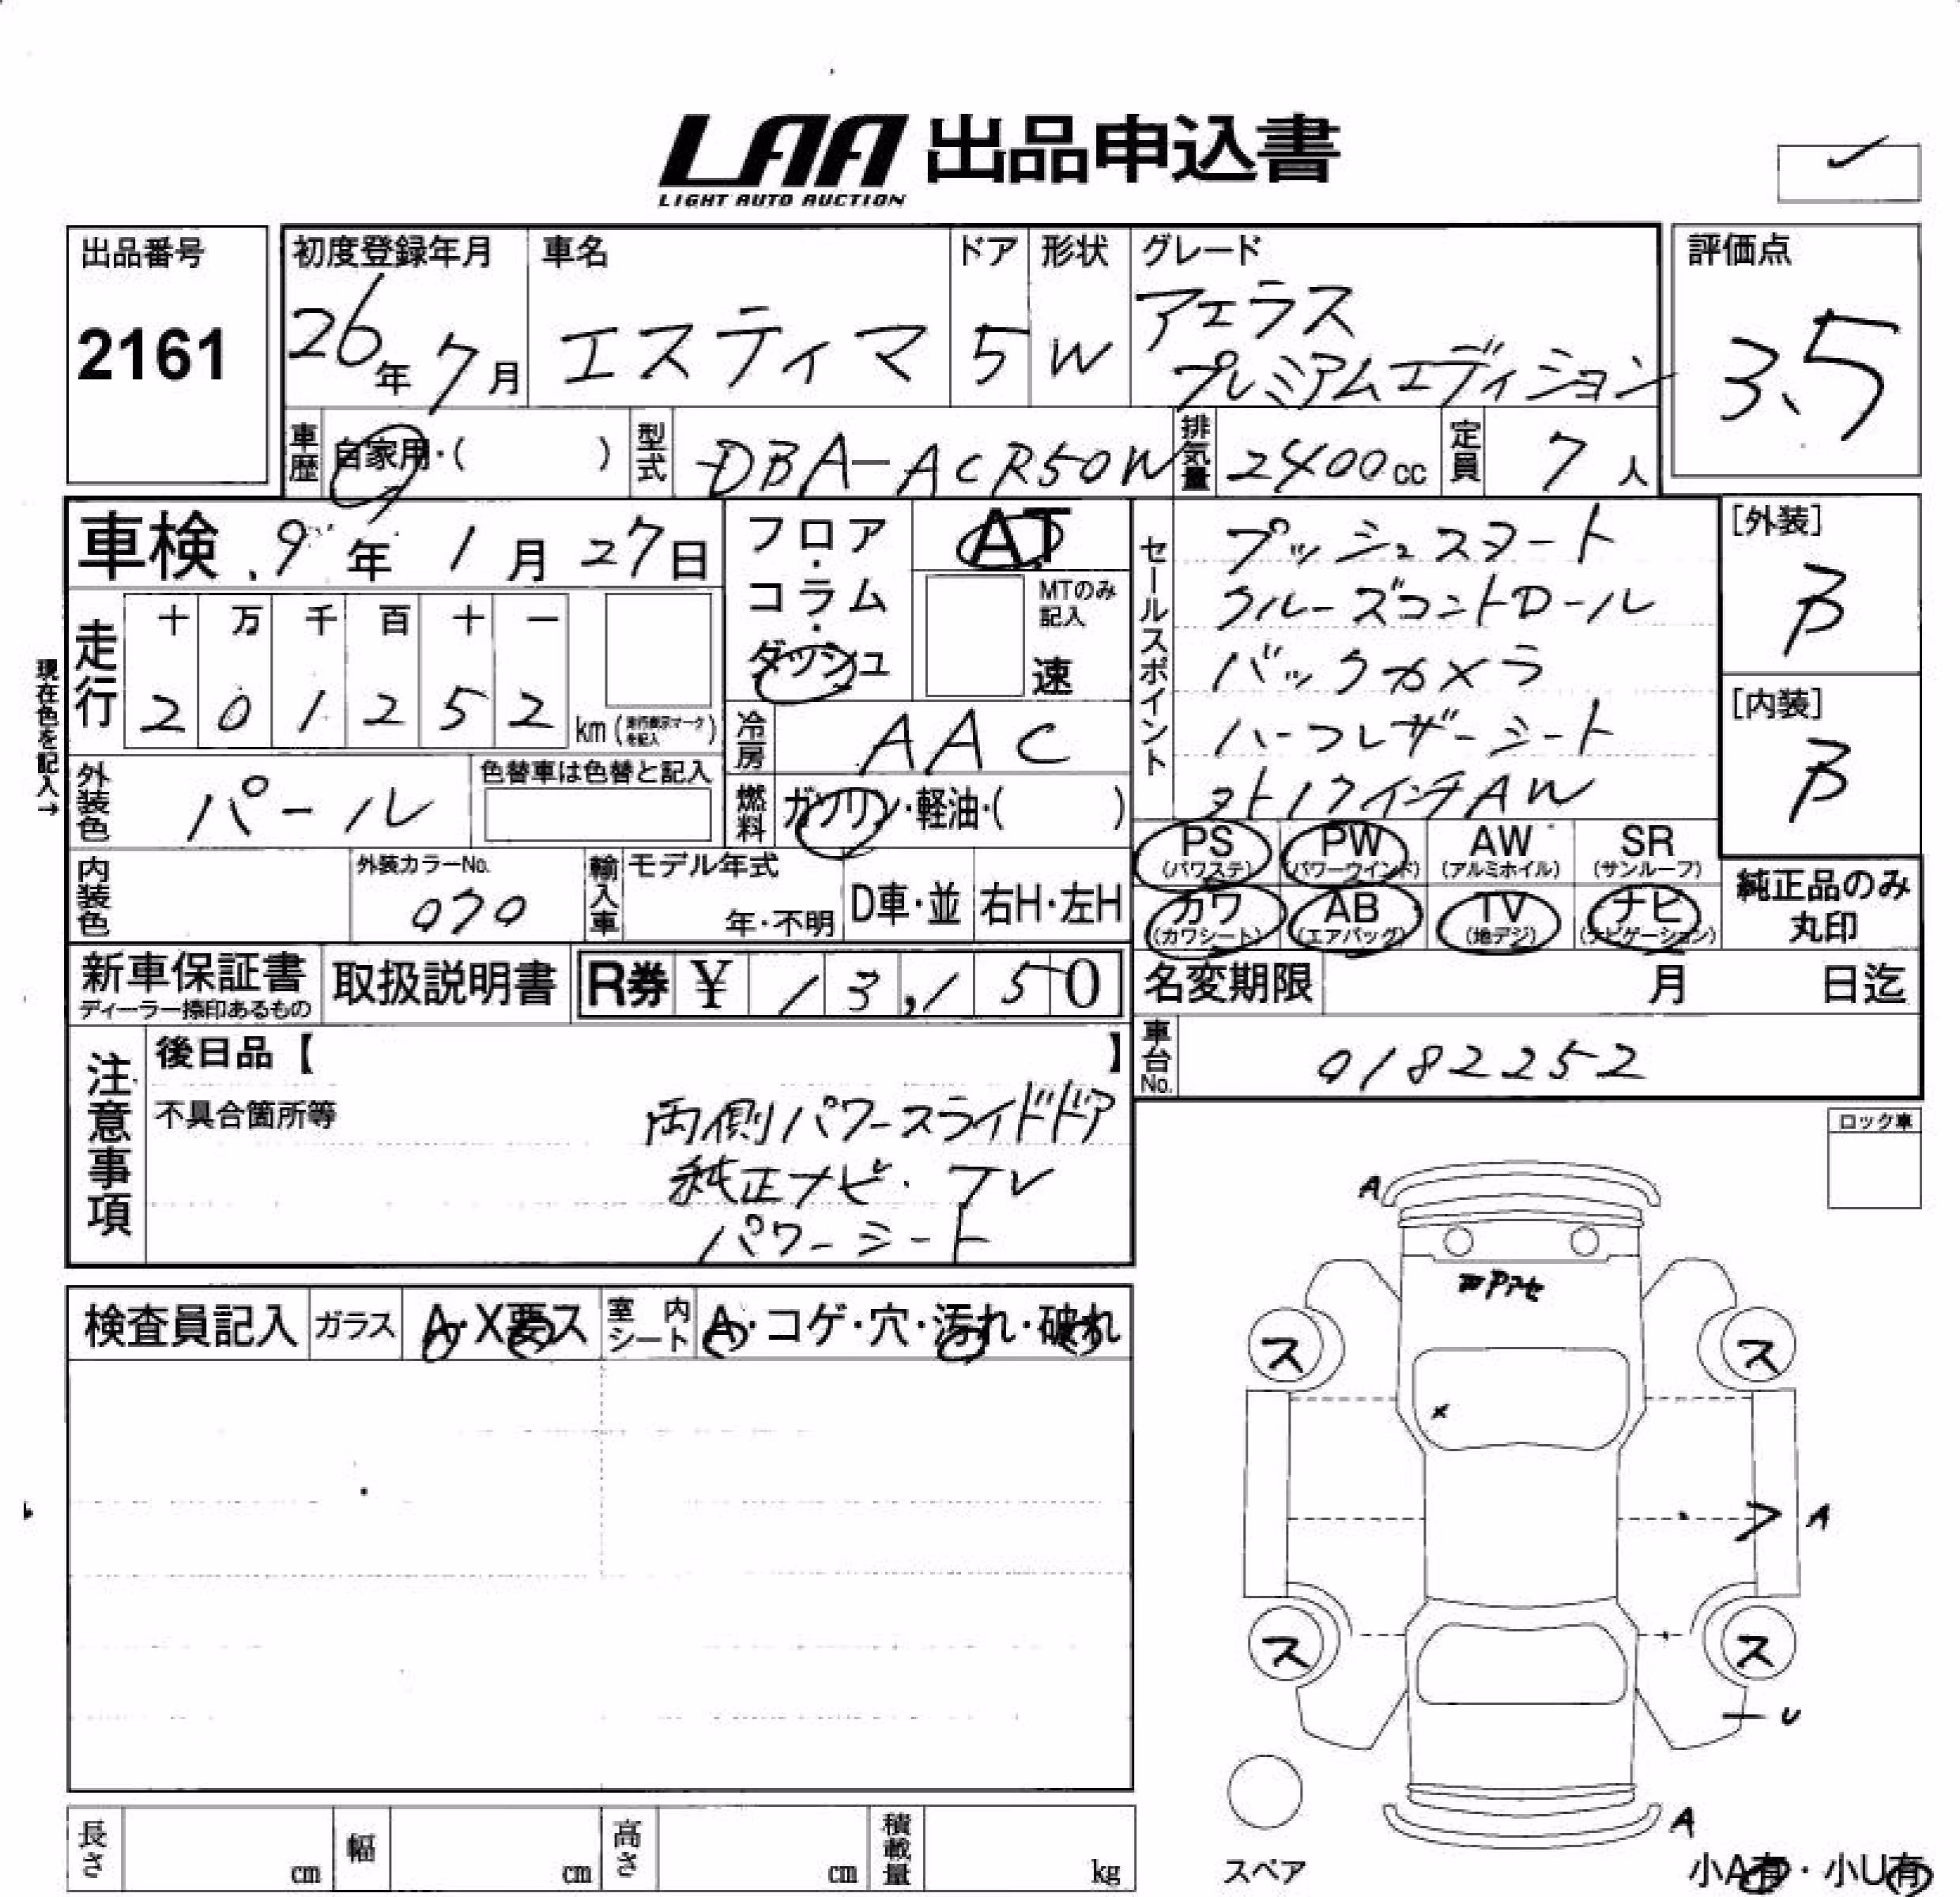 LAA 出品申込書
LIGHT AUTO AUCTION
出品番号
2161
初度登録年月
26年7月
車名
エスティマ
ドア
5
形状
W
グレード
アエラス
プレミアムエディション
評価点
3.5
車歴 自家用・( )
型式 DBA-ACR50W
排気量 2400cc
定員 7人
車検 9年1月27日
フロア・コラム・ダッシュ
AT
MTのみ記入
速
走行
十 万 千 百 十 一
2 0 1 2 5 2 km
現在色を記入→
冷房 AAC
外装色 パール
色替車は色替と記入
燃料 ガソリン・軽油・( )
セールスポイント
プッシュスタート
クルーズコントロール
バックカメラ
ハーフレザーシート
ソト17インチAW
[外装]
B
[内装]
B
PS (パワステ)
PW (パワーウインド)
AW (アルミホイル)
SR (サンルーフ)
カワ (カワシート)
AB (エアバッグ)
TV (地デジ)
ナビ (ナビゲーション)
純正品のみ
丸印
内装色
外装カラーNo.
070
輸入車 モデル年式
年・不明
D車・並
右H・左H
新車保証書
ディーラー捺印あるもの
取扱説明書
R券 ¥ 13,150
名変期限 月 日迄
車台No. 0182252
注意事項
後日品【 】
不具合箇所等
両側パワースライドドア
純正ナビ・TV
パワーシート
ロック車
検査員記入
ガラス A・X要ス
室内シート A・コゲ・穴・汚れ・破れ
A
ス
ス
x
A
ス
ス
U
A
スペア
小A有・小U有
長さ cm
幅 cm
高さ cm
積載量 kg